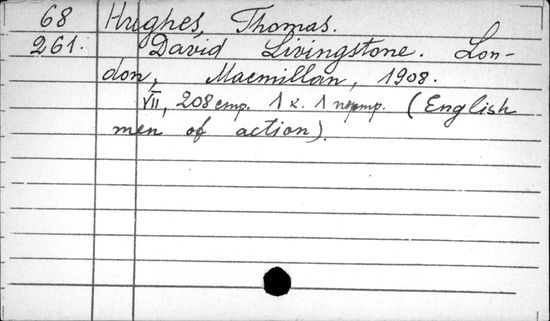 68 Hughes, Thomas.
261. David Livingstone. Lon-
don, Macmillan, 1908.
VII, 208 стр. 1 к. 1 портр. (English
men of action).